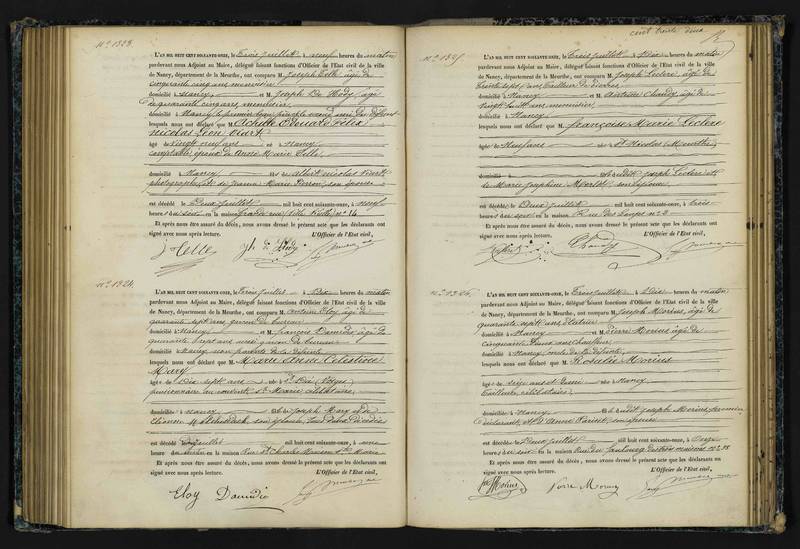 N° 1323.
L'AN MIL HUIT CENT SOIXANTE-ONZE, le Trois Juillet à neuf heures du matin
pardevant nous Adjoint au Maire, délégué faisant fonctions d'Officier de l'Etat civil de la ville
de Nancy, département de la Meurthe, ont comparu M. Joseph âgé de
cinquante cinq ans menuisier
domicilié à Nancy et M Joseph âgé
de quarante cinq ans menuisier
domicilié à Nancy le premier beau père le second ami du défunt
lesquels nous ont déclaré que M. Achille Edouard Félix
Nicolas Léon
âgé de vingt neuf ans né à Nancy
comptable époux de Anne Marie
domicilié à Nancy fils de Albert Nicolas
photographe et de Jeanne Marie son épouse
est décédé le Deux Juillet mil huit cent soixante-onze, à neuf
heures du soir en la maison Grande rue Ville Vieille n° 14
Et après nous être assuré du décès, nous avons dressé le présent acte que les déclarants ont
signé avec nous après lecture. L'Officier de l'Etat civil,
N° 1324.
L'AN MIL HUIT CENT SOIXANTE-ONZE, le Trois Juillet à Dix heures du matin
pardevant nous Adjoint au Maire, délégué faisant fonctions d'Officier de l'Etat civil de la ville
de Nancy, département de la Meurthe, ont comparu M. Antoine Eloy âgé de
quarante sept ans garçon de bureau
domicilié à Nancy et M François âgé de
quarante sept ans garçon de bureau
domicilié à Nancy non parents de la défunte
lesquels nous ont déclaré que M Marie Anne Célestine
Mary
âgée de Dix sept ans née à St Dié Vosges
pensionnaire au couvent Ste Marie célibataire
domiciliée à Nancy fille de Joseph Mary et de
son épouse, tous deux décédés
est décédée Juillet mil huit cent soixante-onze, à
heures du matin en la maison Rue St Charles Maison Ste Marie
Et après nous être assuré du décès, nous avons dressé le présent acte que les déclarants ont
signé avec nous après lecture. L'Officier de l'Etat civil,
Eloy
cent trente deux
N° 1325
L'AN MIL HUIT CENT SOIXANTE-ONZE, le Trois Juillet à Dix heures du matin
pardevant nous Adjoint au Maire, délégué faisant fonctions d'Officier de l'Etat civil de la ville
de Nancy, département de la Meurthe, ont comparu M. Joseph Leclerc âgé de
trente sept ans tailleur de pierres
domicilié à Nancy et M Antoine âgé de
vingt huit ans menuisier
domicilié à Nancy
lesquels nous ont déclaré que M. Françoise Marie Leclerc
âgée de Neuf ans née à St Nicolas Meurthe
domiciliée à fille dudit Joseph Leclerc et
de Marie Joséphine son épouse
est décédée le Deux Juillet mil huit cent soixante-onze, à trois
heures du soir en la maison Rue des Loups n° 2
Et après nous être assuré du décès, nous avons dressé le présent acte que les déclarants ont
signé avec nous après lecture. L'Officier de l'Etat civil,
N° 1326.
L'AN MIL HUIT CENT SOIXANTE-ONZE, le Trois Juillet à Dix heures du matin
pardevant nous Adjoint au Maire, délégué faisant fonctions d'Officier de l'Etat civil de la ville
de Nancy, département de la Meurthe, ont comparu M. Joseph Morius âgé de
quarante sept ans
domicilié à Nancy et M Pierre Morius âgé de
cinquante ans chauffeur
domicilié à Nancy oncle de la défunte
lesquels nous ont déclaré que M Rosalie Morius
âgée de seize ans et demi née à Nancy
tailleuse célibataire
domiciliée à Nancy fille dudit Joseph Morius premier
déclarant, et d'Anne son épouse
est décédée le Deux Juillet mil huit cent soixante-onze, à onze
heures du soir en la maison rue du faubourg des trois maisons n° 98
Et après nous être assuré du décès, nous avons dressé le présent acte que les déclarants ont
signé avec nous après lecture. L'Officier de l'Etat civil,